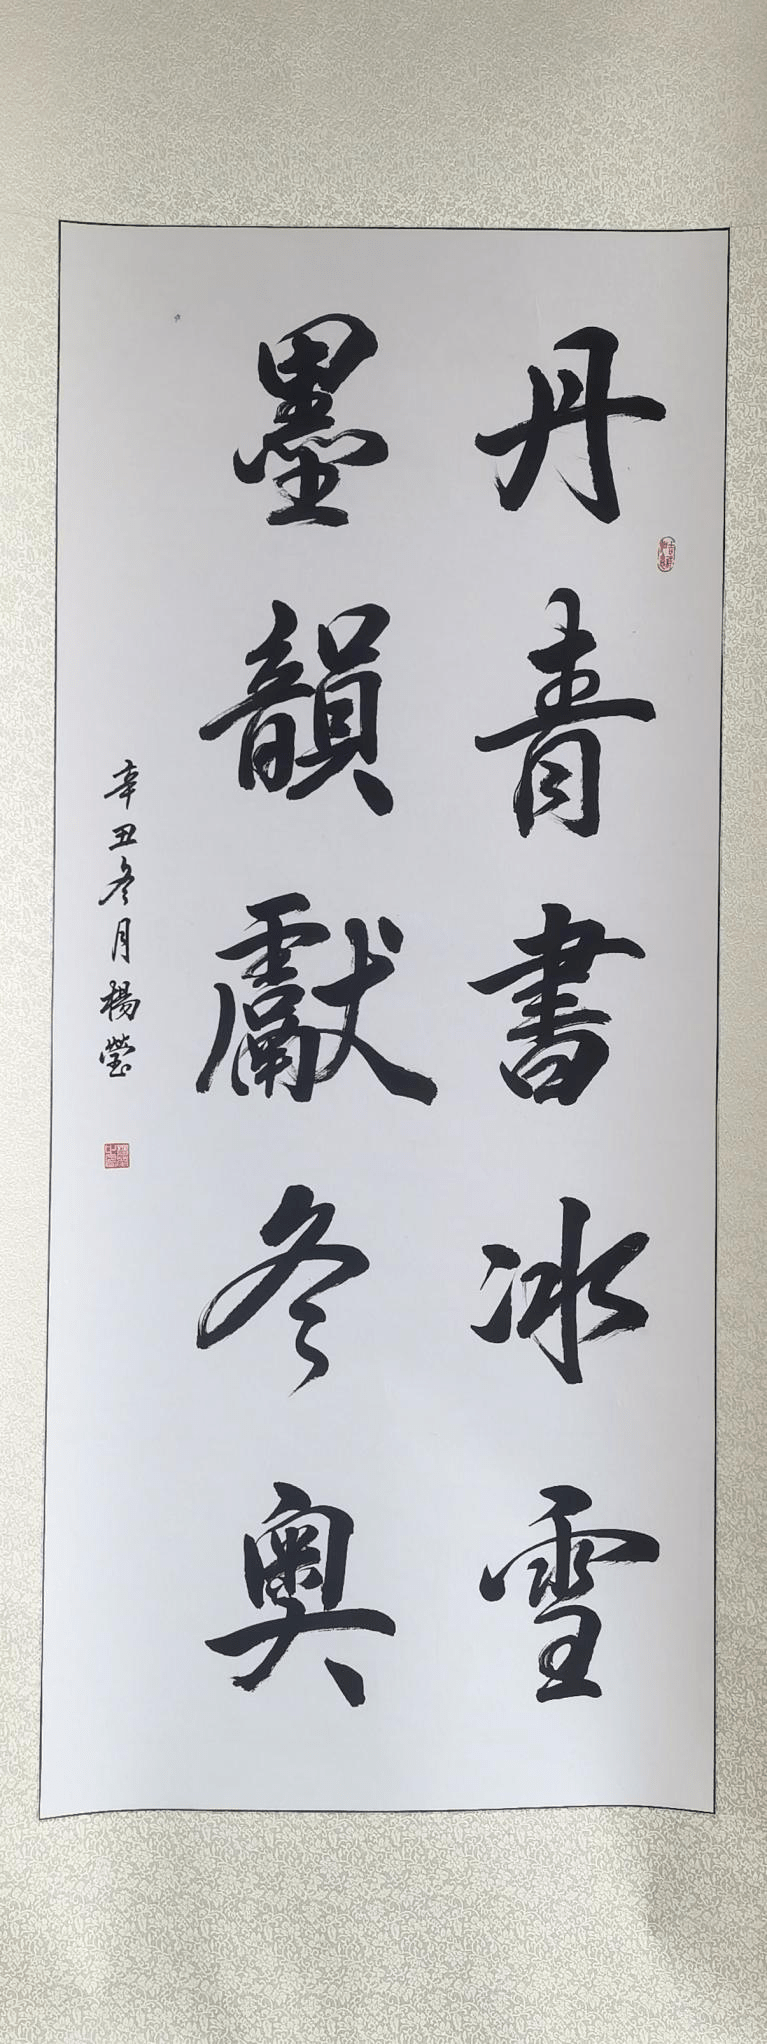 丹青書冰雪
墨韻獻冬奥
辛丑冬月楊瑩